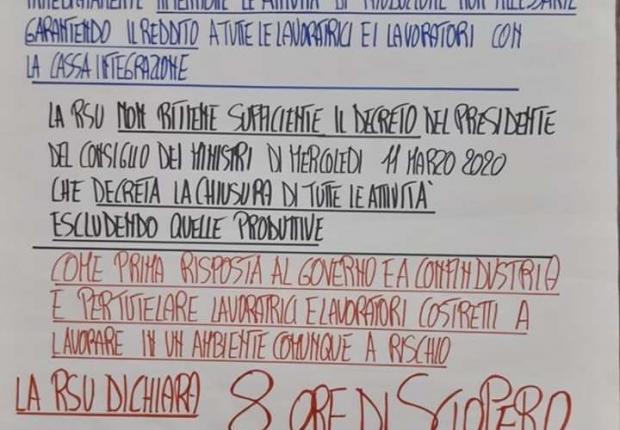 LE ATTIVITA' DI PRODUZIONE NON NECESSARIE
GARANTENDO IL REDDITO A TUTE LE LAVORATRICI E I LAVORATORI CON
LA CASSA INTEGRAZIONE
LA RSU NON RITIENE SUFFICIENTE IL DECRETO DEL PRESIDENTE
DEL CONSIGLIO DEI MINISTRI DI MERCOLEDI 11 MARZO 2020
CHE DECRETA LA CHIUSURA DI TUTTE LE ATTIVITA'
ESCLUDENDO QUELLE PRODUTTIVE
COME PRIMA RISPOSTA AL GOVERNO E A CONFINDUSTRIA
E PER TUTELARE LAVORATRICI E LAVORATORI COSTRETTI A
LAVORARE IN UN AMBIENTE COMUNQUE A RISCHIO
LA RSU DICHIARA 8 ORE DI SCIOPERO